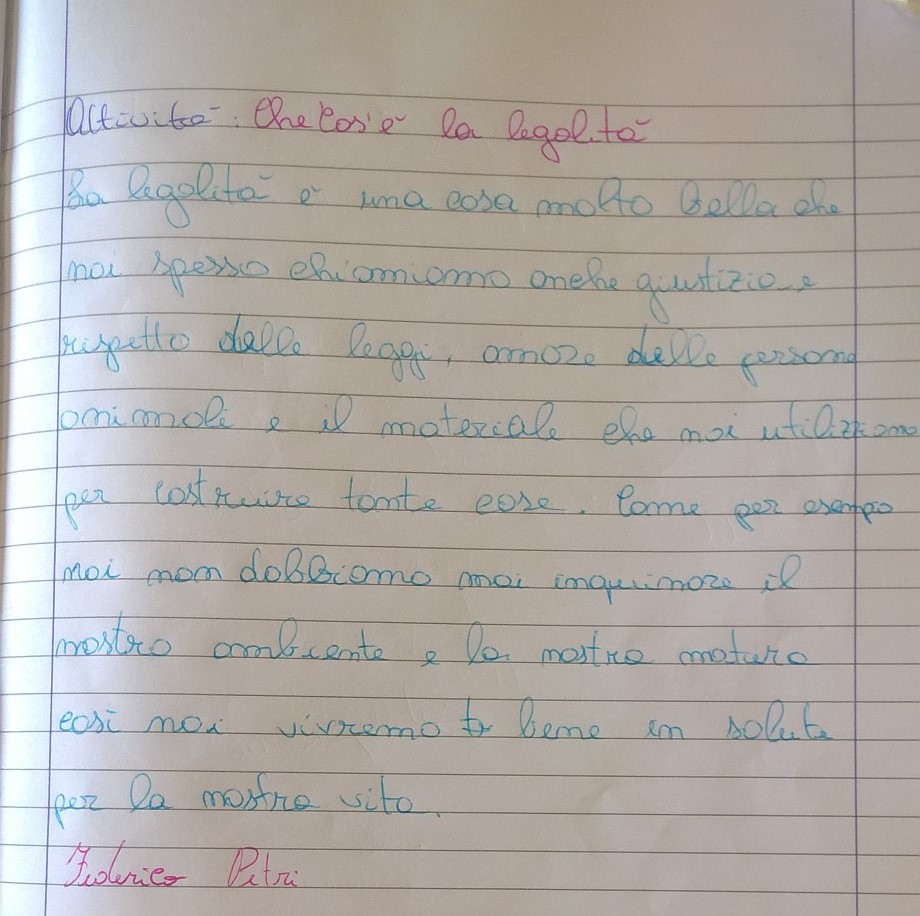 Attività: Che cos'è la legalità
La legalità è una cosa molto bella che
noi spesso chiamiamo anche giustizia e
rispetto delle leggi, amore delle persone
animali e il materiale che noi utilizziamo
per costruire tante cose. Come per esempo
noi non dobbiamo mai inquinare il
nostro ambiente e la nostra natura
così noi vivremo bene in salute
per la nostra vita.
Federico Petri